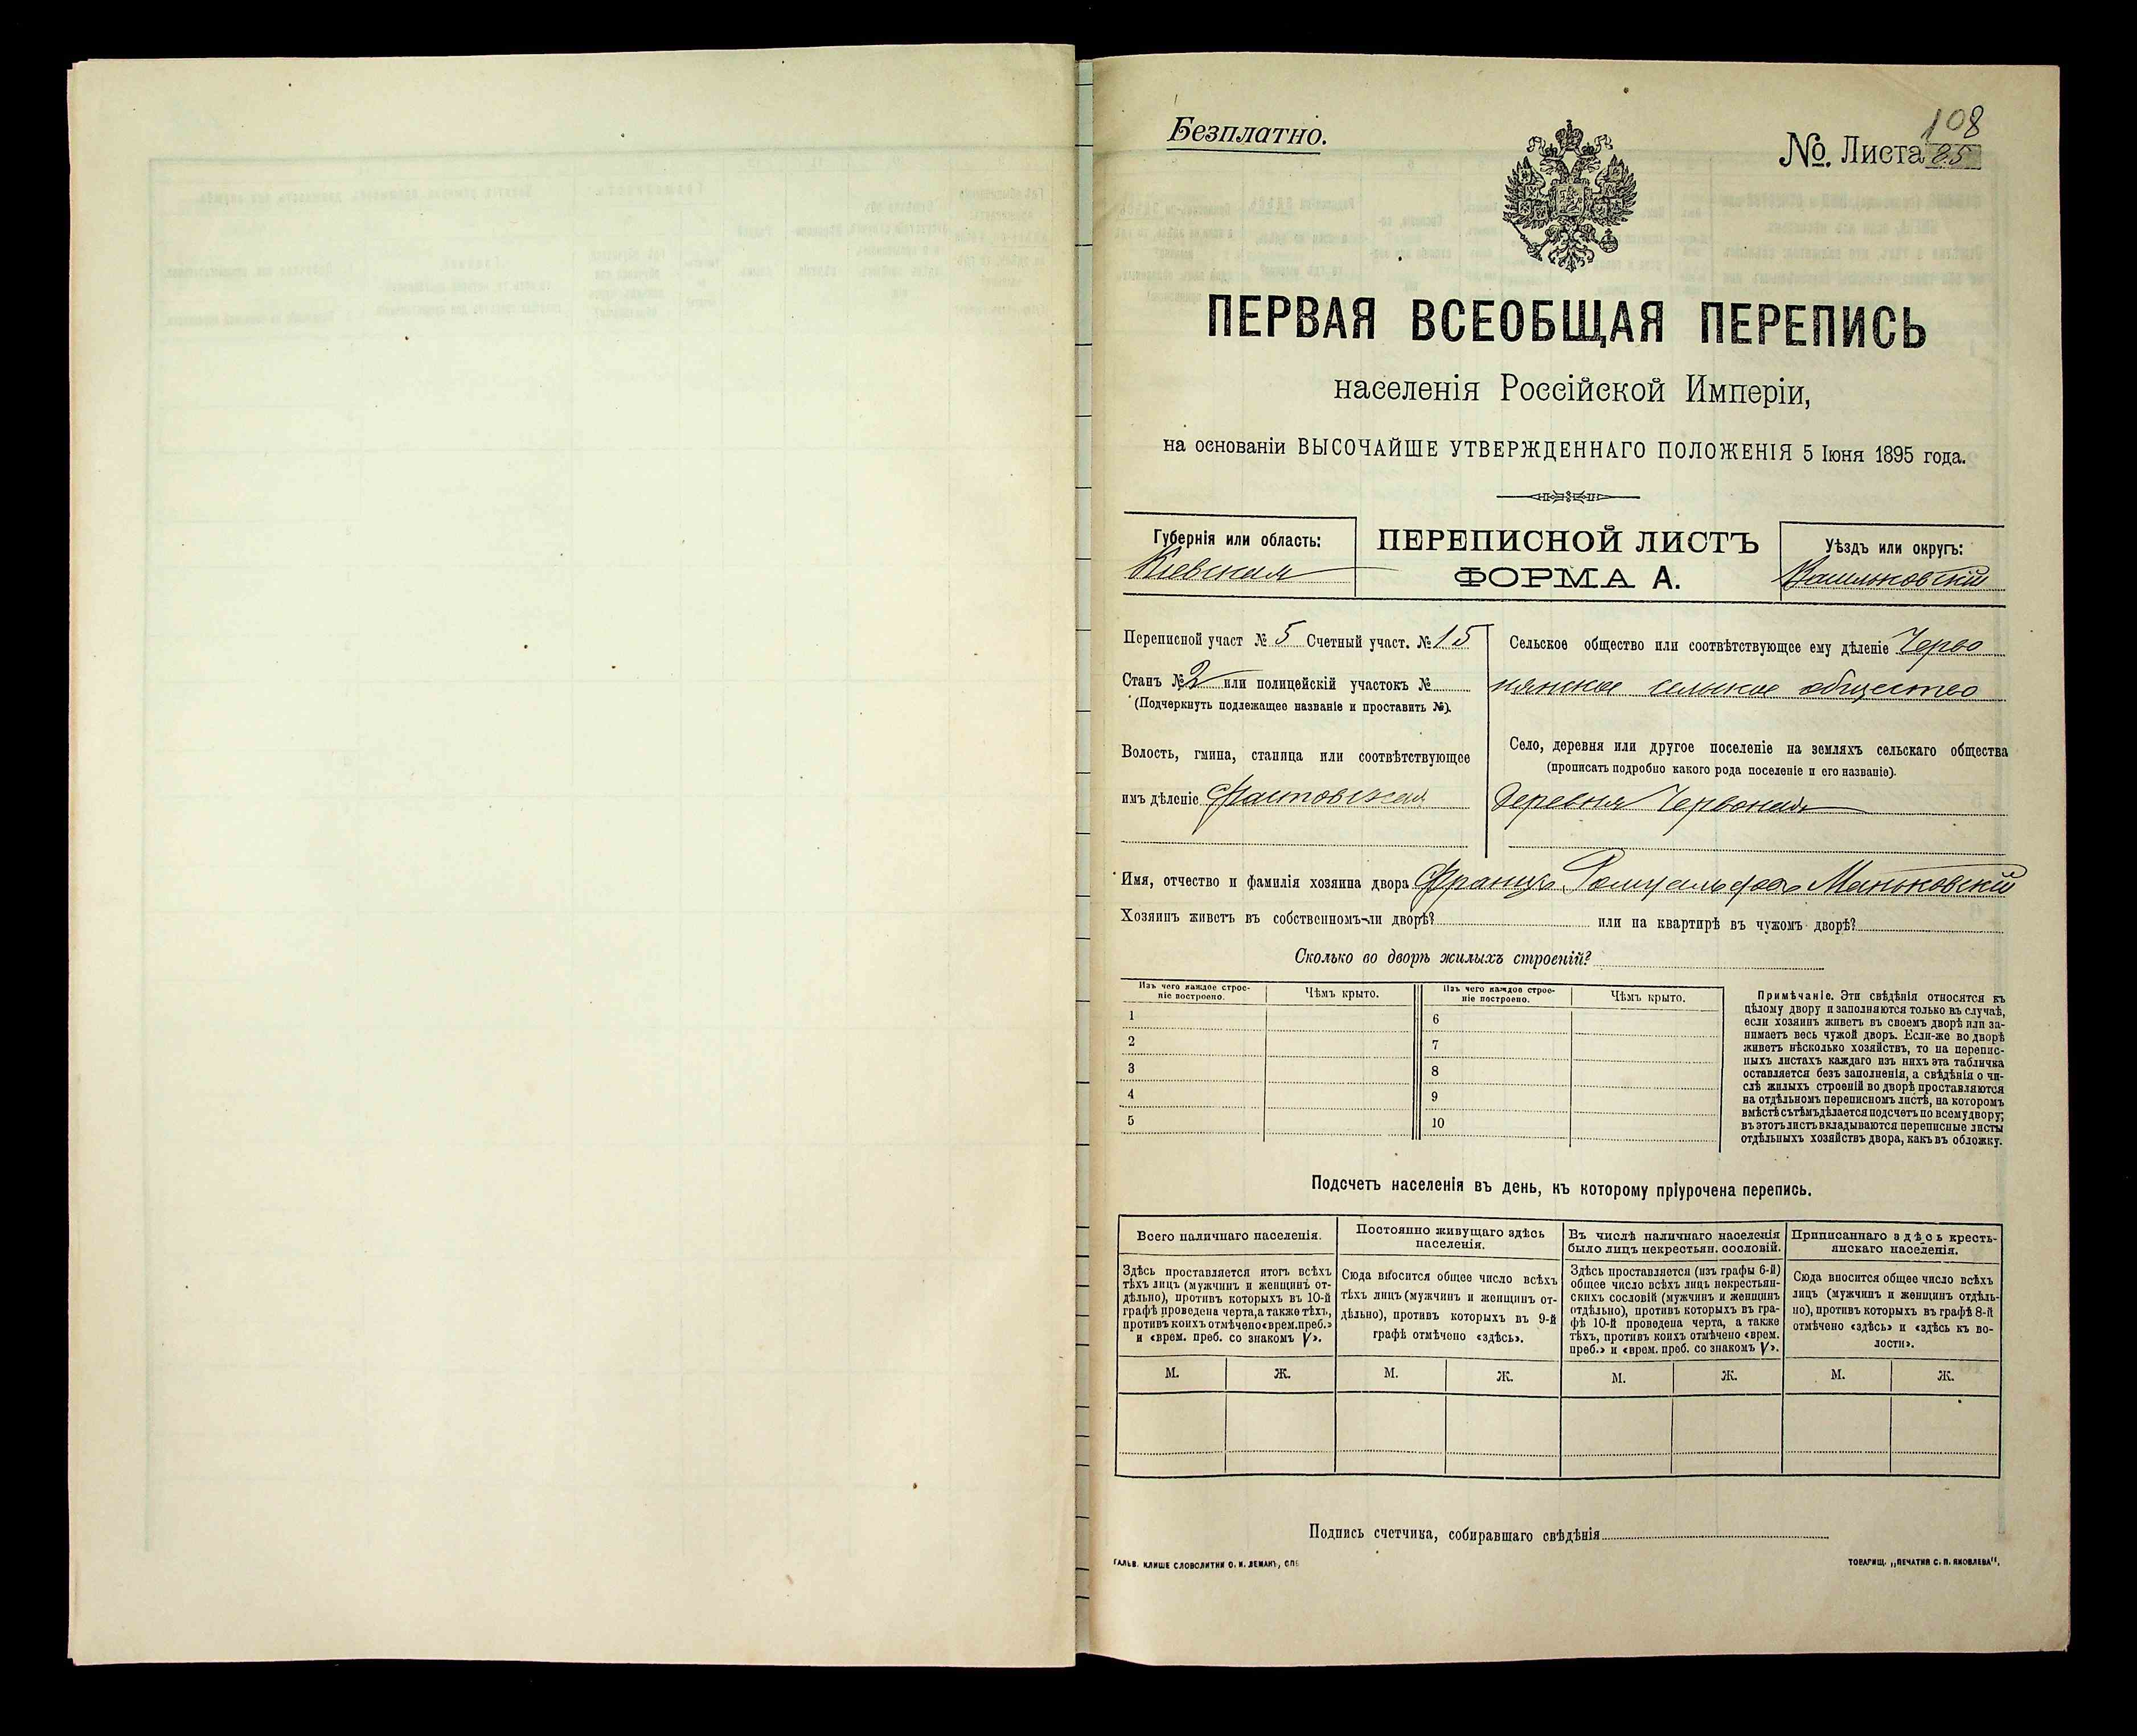 Безплатно.
108
№. Листа 85
ПЕРВАЯ ВСЕОБЩАЯ ПЕРЕПИСЬ
населенія Россійской Имперіи,
на основаніи ВЫСОЧАЙШЕ УТВЕРЖДЕННАГО ПОЛОЖЕНІЯ 5 Іюня 1895 года.
Губернія или область:
Кіевская
ПЕРЕПИСНОЙ ЛИСТЪ
ФОРМА А.
Уѣздъ или округъ:
Васильковскій
Переписной участ № 5 Счетный участ. № 15
Станъ № 2 или полицейскій участокъ №
(Подчеркнуть подлежащее названіе и проставить №).
Волость, гмина, станица или соотвѣтствующее
имъ дѣленіе Фастовская
Сельское общество или соотвѣтствующее ему дѣленіе Черво
нянское сельское общество
Село, деревня или другое поселеніе на земляхъ сельскаго общества
(прописать подробно какого рода поселеніе и его названіе).
Деревня Червоная
Имя, отчество и фамилія хозяина двора Францъ Ромуальдовъ Маньковскій
Хозяинъ живетъ въ собственномъ-ли дворѣ? или на квартирѣ въ чужомъ дворѣ?
Сколько во дворѣ жилыхъ строеній?
Изъ чего каждое строе-
ніе построено.
Чѣмъ крыто.
Изъ чего каждое строе-
ніе построено.
Чѣмъ крыто.
1
2
3
4
5
6
7
8
9
10
Примѣчаніе. Эти свѣдѣнія относятся къ
цѣлому двору и заполняются только въ случаѣ,
если хозяинъ живетъ въ своемъ дворѣ или за-
нимаетъ весь чужой дворъ. Если-же во дворѣ
живетъ нѣсколько хозяйствъ, то на перепис-
ныхъ листахъ каждаго изъ нихъ эта табличка
оставляется безъ заполненія, а свѣдѣнія о чи-
слѣ жилыхъ строеній во дворѣ проставляются
на отдѣльномъ переписномъ листѣ, на которомъ
вмѣстѣ съ тѣмъ дѣлается подсчетъ по всему двору;
въ этотъ листъ вкладываются переписные листы
отдѣльныхъ хозяйствъ двора, какъ въ обложку.
Подсчетъ населенія въ день, къ которому пріурочена перепись.
Всего наличнаго населенія.
Здѣсь проставляется итогъ всѣхъ
тѣхъ лицъ (мужчинъ и женщинъ от-
дѣльно), противъ которыхъ въ 10-й
графѣ проведена черта, а также тѣхъ,
противъ коихъ отмѣчено «врем. преб.»
и «врем. преб. со знакомъ V».
Постоянно живущаго здѣсь
населенія.
Сюда вносится общее число всѣхъ
тѣхъ лицъ (мужчинъ и женщинъ от-
дѣльно), противъ которыхъ въ 9-й
графѣ отмѣчено «здѣсь».
Въ числѣ наличнаго населенія
было лицъ некрестьян. сословій.
Здѣсь проставляется (изъ графы 6-й)
общее число всѣхъ лицъ некрестьян-
скихъ сословій (мужчинъ и женщинъ
отдѣльно), противъ которыхъ въ гра-
фѣ 10-й проведена черта, а также
тѣхъ, противъ коихъ отмѣчено «врем.
преб.» и «врем. преб. со знакомъ V».
Приписаннаго здѣсь кресть-
янскаго населенія.
Сюда вносится общее число всѣхъ
лицъ (мужчинъ и женщинъ отдѣль-
но), противъ которыхъ въ графѣ 8-й
отмѣчено «здѣсь» и «здѣсь къ во-
лости».
М. Ж. М. Ж. М. Ж. М. Ж.
Подпись счетчика, собиравшаго свѣдѣнія
ГАЛЬВ. КЛИШЕ СЛОВОЛИТНИ О. И. ЛЕМАНЪ, СПБ
ТОВАРИЩ. „ПЕЧАТНЯ С. П. ЯКОВЛЕВА“.